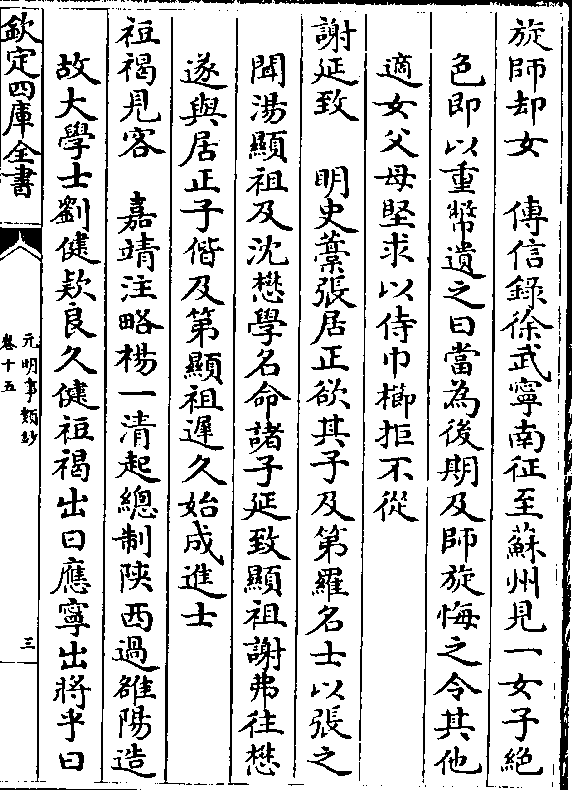 旋師却女　傳信錄徐武寧南征至蘇州見一女子絕
色即以重幣遺之曰當為後期及師旋悔之令其他
適女父母堅求以侍巾櫛拒不從
謝延致　明史藁張居正欲其子及第羅名士以張之
聞湯顯祖及沈懋學名命諸子延致顯祖謝弗往懋
遂與居正子偕及第顯祖遲久始成進士
袒裼見客　嘉靖注略楊一清起總制陝西過雒陽造
故大學士劉健款良久健袒裼出曰應寧出將乎曰
欽定四庫全書
元明事類鈔
卷十五
三